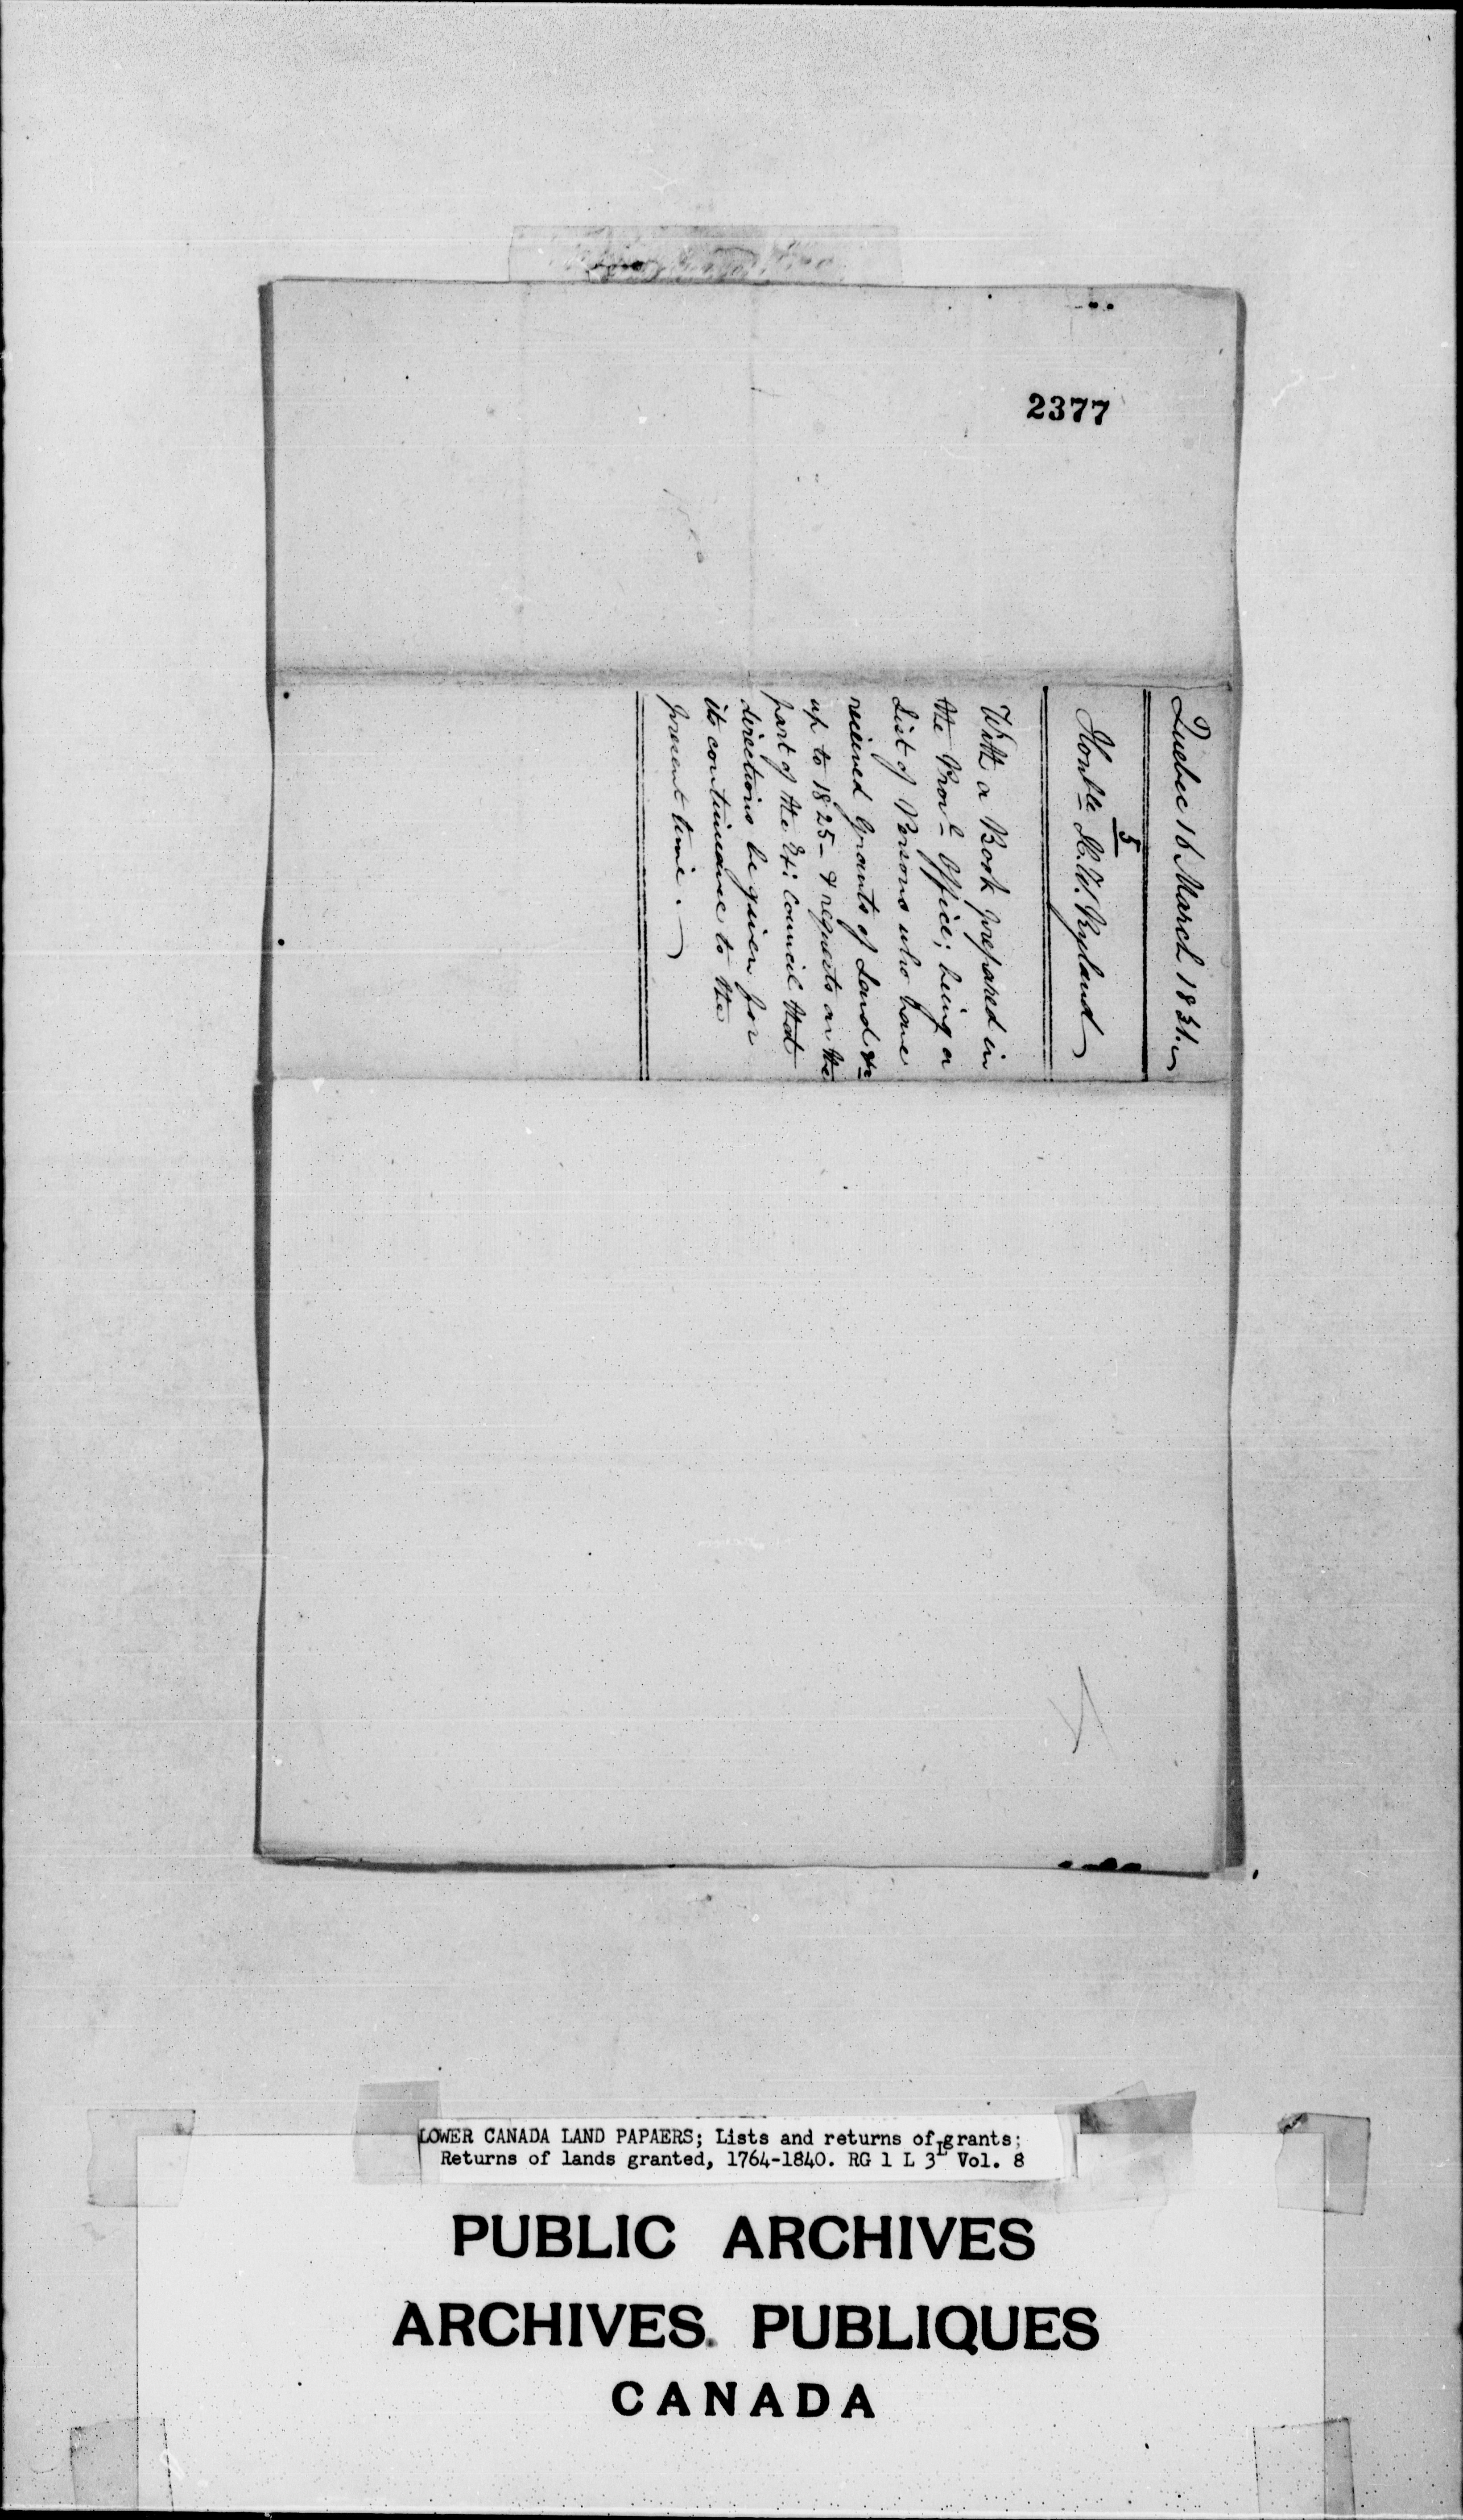 2377
Quebec 16 March 1831.
5
Honble H. W. Ryland
With a Book prepared in
the Provl Office; being a
List of Persons who have
received Grants of Land &c
up to 1825 - & requests on the
part of the Ex: Council that
directions be given for
its continuance to the
present time.
LOWER CANADA LAND PAPAERS; Lists and returns of grants;
Returns of lands granted, 1764-1840. RG 1 L 3L Vol. 8
PUBLIC ARCHIVES
ARCHIVES PUBLIQUES
CANADA